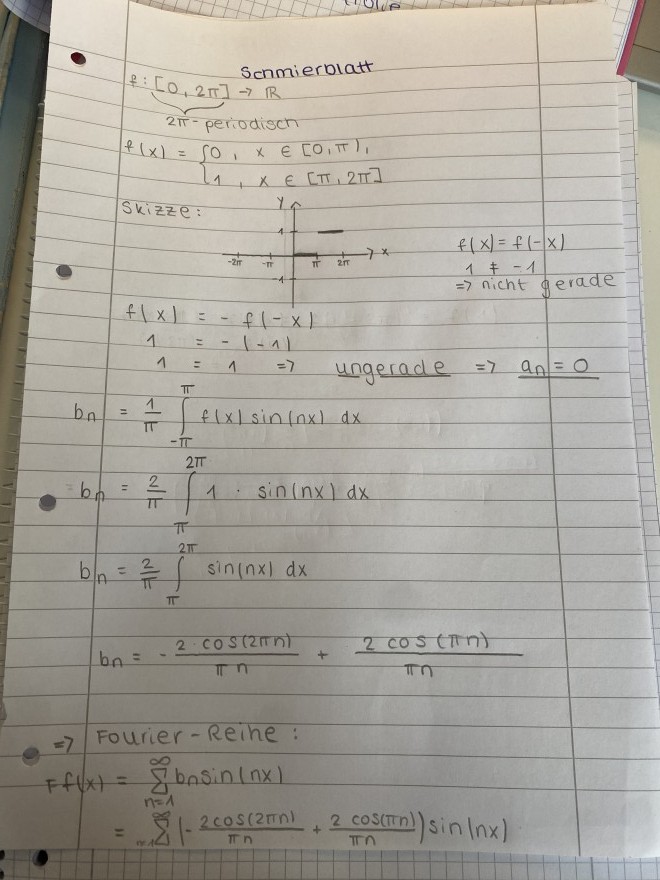 Schmierblatt
f : [0, 2π] → ℝ
2π-periodisch
f(x) = { 0 , x ∈ [0, π),
1 , x ∈ [π, 2π]
Skizze:
y
1
-2π -π π 2π x
-1
f(x) = f(-x)
1 ≠ -1
=> nicht gerade
f(x) = - f(-x)
1 = -(-1)
1 = 1 => ungerade => aₙ = 0
bₙ = 1/π ∫_{-π}^{π} f(x) sin(nx) dx
bₙ = 2/π ∫_{π}^{2π} 1 · sin(nx) dx
bₙ = 2/π ∫_{π}^{2π} sin(nx) dx
bₙ = - 2·cos(2πn)/πn + 2 cos(πn)/πn
=> Fourier-Reihe:
Ff(x) = ∑_{n=1}^{∞} bₙ sin(nx)
= ∑_{n=1}^{∞} (- 2cos(2πn)/πn + 2 cos(πn)/πn) sin(nx)